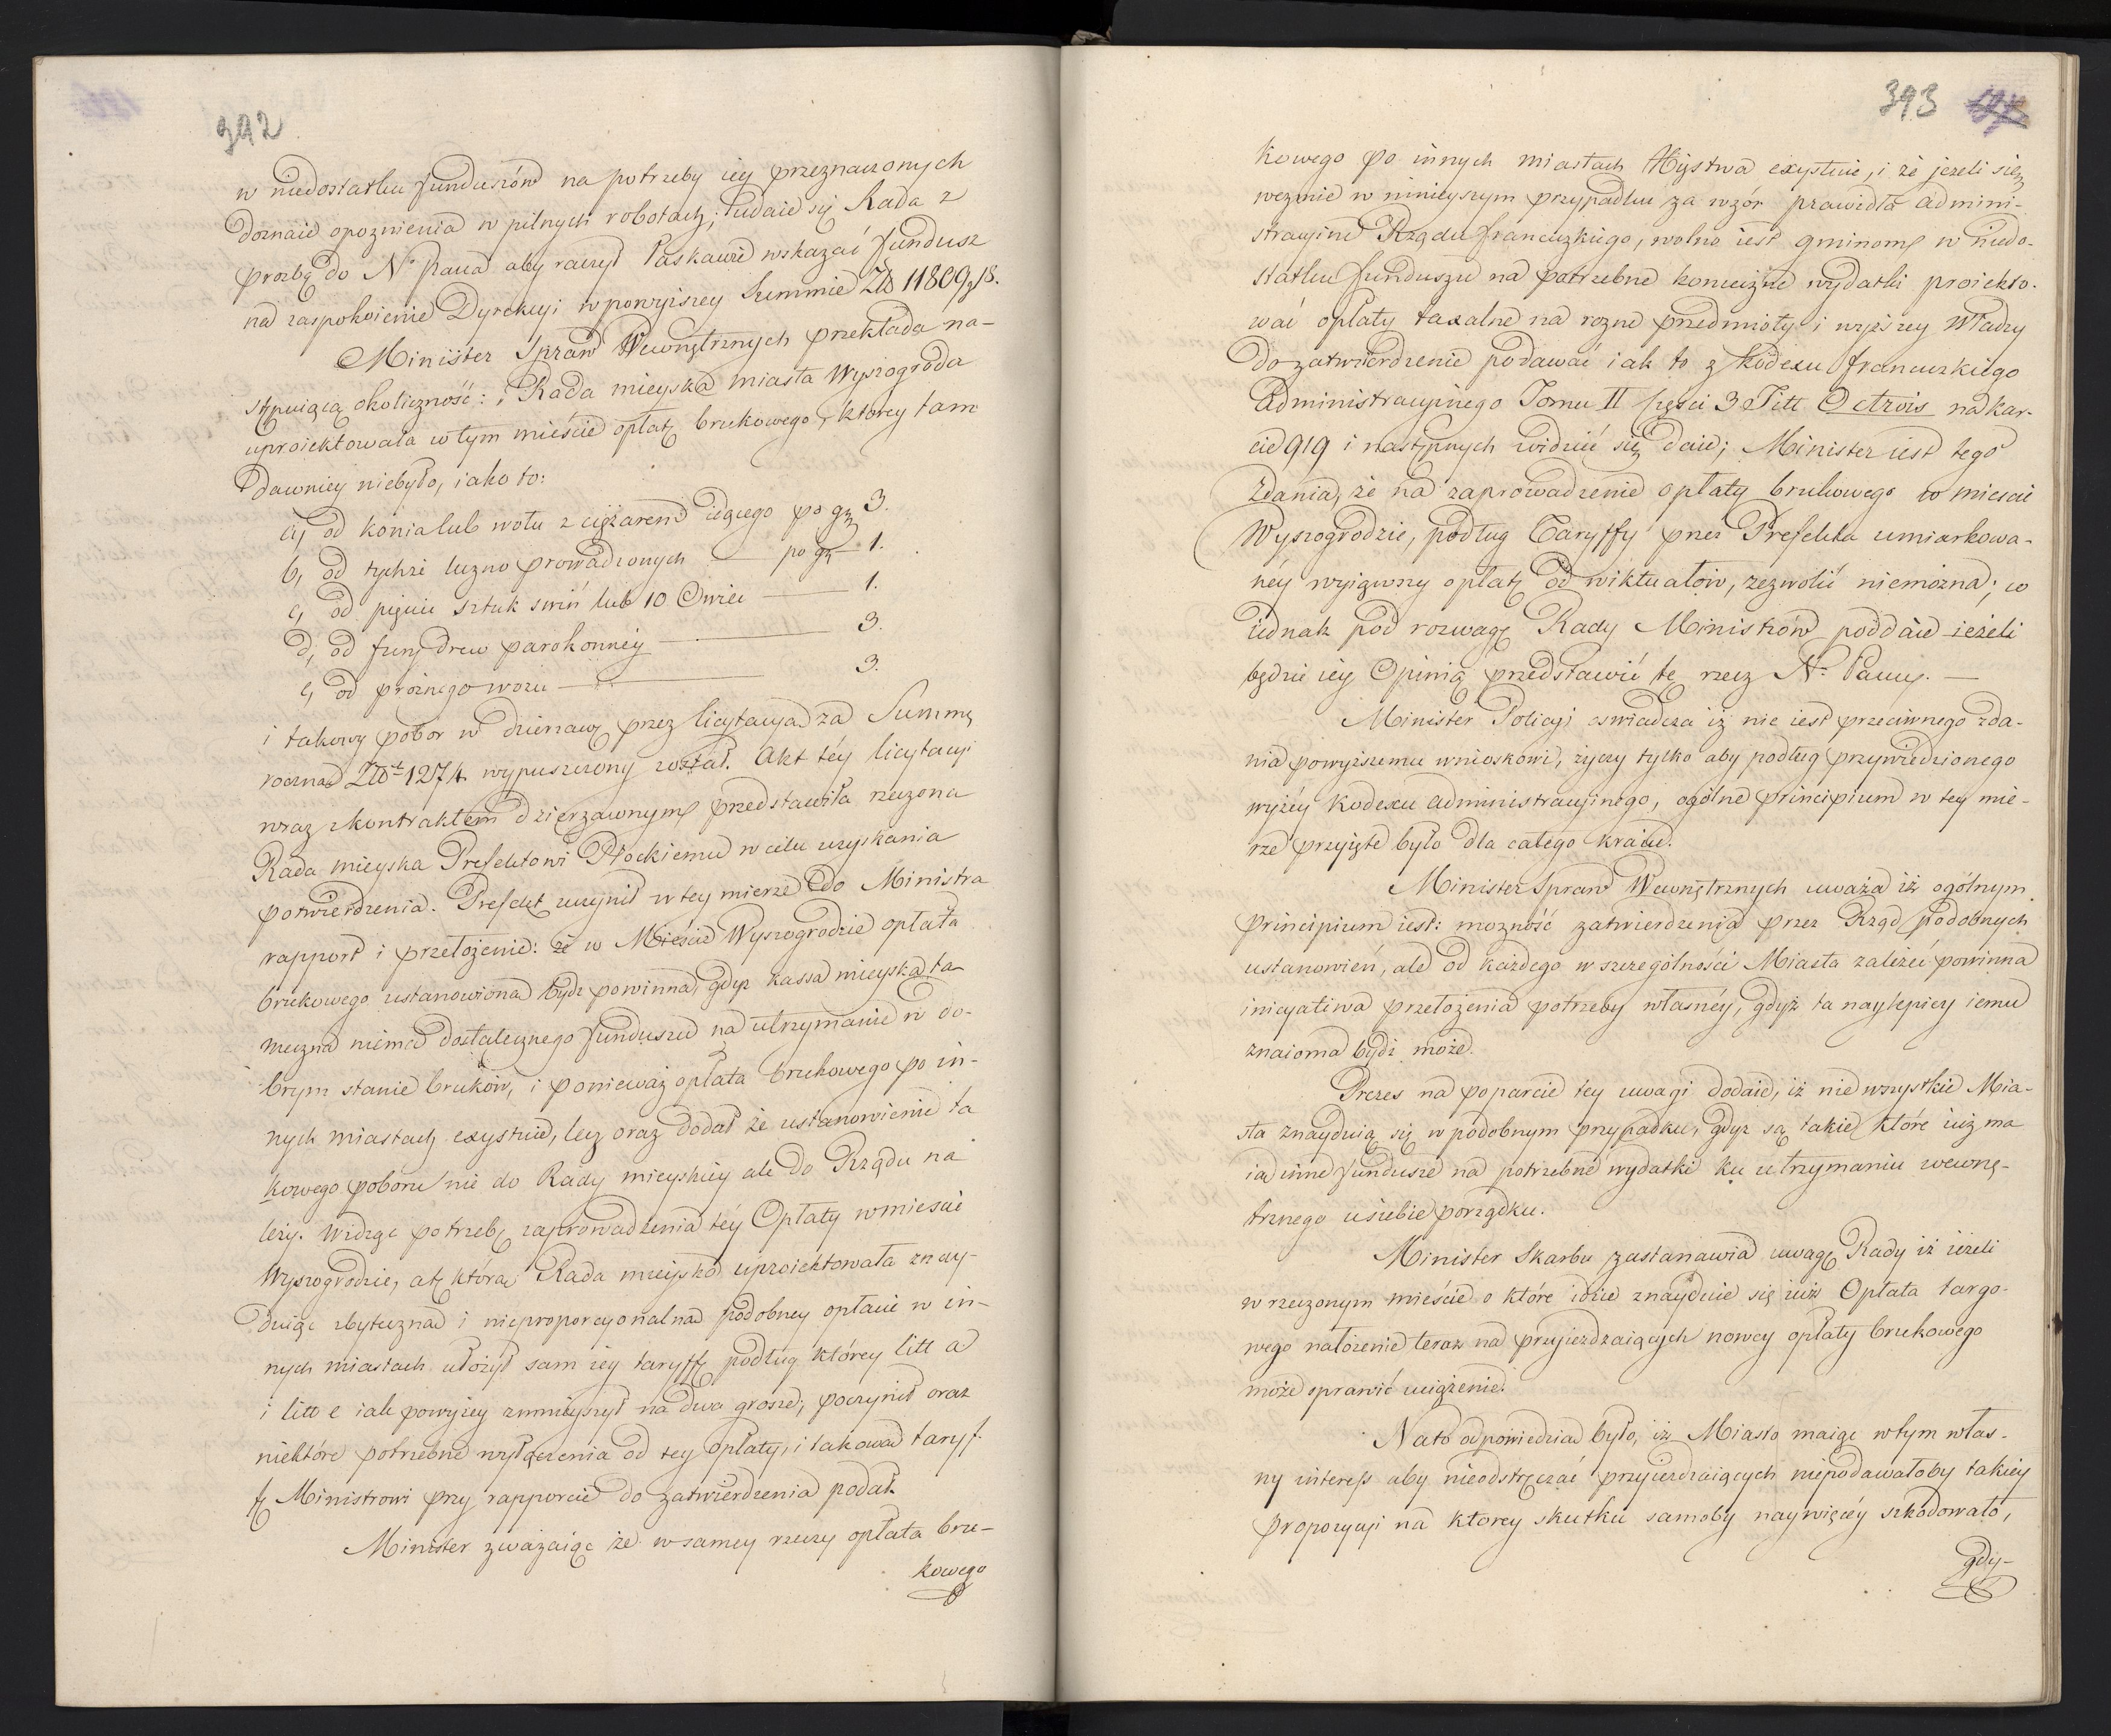 392
w niedostatku funduszów na potrzeby iey przeznaczonych
doznaie opoznienia w pilnych robotach; udaie się Rada z
prozbą do N. Pana aby raczył łaskawie wskazać fundusz
na zaspokoienie Dyrekcyi w powyższey Summie Złł 11809 g 18.
Minister Spraw Wewnętrznych przekłada na-
stępuiącą okoliczność: Rada mieyska miasta Wyszogroda
uproiektowała w tym mieście opłatę brukowego, ktorey tam
dawniey niebyło, iako to:
a, od konia lub wołu z ciężarem idącego po gr 3.
b, od tychże luzno prowadzonych — po gr 1.
c, od pięciu sztuk swiń lub 10 Owiec — 1.
d, od fury drew parokonney — 3.
e, od prożnego wozu — 3.
i takowy pobor w dzierzawę przez licytacyą za Summę
roczną Złł 1274 wypuszczony został. Akt téy licytacyi
wraz z kontraktem dzierzawnym przedstawiła rzeczona
Rada mieyska Prefektowi Płockiemu w celu uzyskania
potwierdzenia. Prefekt uczynił w tey mierze do Ministra
rapport i przełożenie: że w Mieście Wyszogrodzie opłata
brukowego ustanowiona bydź powinna, gdyż kassa mieyska ta
meczna niema dostatecznego funduszu na utrzymanie w do-
brym stanie bruków, i ponieważ opłata brukowego po in-
nych miastach exystuie, lecz oraz dodał że ustanowienie ta
kowego poboru nie do Rady mieyskiey ale do Rządu na
leży. Widząc potrzebę zaprowadzenia téy Opłaty w mieście
Wyszogrodzie, ale którą Rada mieyska uproiektowała znay-
duiąc zbyteczną i nieproporcyonalną podobney opłacie w in-
nych miastach ułożył sam iey taryffę podług którey litt a
i litt e iak powyżey zmnieyszył na dwa grosze, poczynił oraz
niektóre potrzebne wyłączenia od tey opłaty, i takową taryf-
fę Ministrowi przy rapporcie do zatwierdzenia podał
Minister zważaiąc że w samey rzeczy opłata bru-
kowego
393
kowego po innych miastach Xięstwa exystuie, i że jezeli się
wezmie w ninieyszym przypadku za wzór prawidła admini-
stracyine Rządu francuzkiego, wolno iest gminom w niedo-
statku funduszu na potrzebne konieczne wydatki proiekto-
wać opłaty taxalne na rozne przedmioty i wyższey Władzy
do zatwierdzenie podawać iak to z kodexu francuzkiego
administracyinego Tomu II części 3 Titt Octrois na kar-
cie 919 i następnych widzieć się daie; Minister iest tego
zdania, że na zaprowadzenie opłaty brukowego w miescie
Wyszogrodzie, podług Taryffy przez Prefekta umiarkowa-
néy wyiąwszy opłatę od wiktuałów, zezwolić niemożna; co
iednak pod rozwagę Rady Ministrów poddaie ieżeli
będzie iey Opinią przedstawić tę rzecz N. Panu. —
Minister Policyi oswiadcza iż nie iest przeciwnego zda-
nia powyższemu wnioskowi, życzy tylko aby podług przywiedzionego
wyżéy kodexu administracyinego, ogólne principium w tey mie-
rze przyięte było dla całego kraiu.
Minister Spraw Wewnętrznych uważa iż ogólnym
principium iest: mozność zatwierdzenia przez Rząd podobnych
ustanowień, ale od każdego w szczególności Miasta zależéć powinna
inicyatiwa przełożenia potrzeby własnéy, gdyż ta naylepiey iemu
znaioma bydź może.
Prezes na poparcie tey uwagi dodaie, iż nie wszystkie Mia-
sta znayduią się w podobnym przypadku, gdyż są takie które iuż ma
ią inne fundusze na potrzebne wydatki ku utrzymaniu wewnę-
trznego u siebie porządku.
Minister Skarbu zastanawia uwagę Rady iż ieżeli
w rzeczonym mieście o które idzie znayduie się iuż Opłata targo-
wego nałożenie teraz na przyieżdzaiących nowey opłaty brukowego
może sprawić uciążenie.
Na to odpowiedzia było, iż Miasto maiąc w tym włas-
ny interess aby nieodstręczać przyiezdzaiących niepodawałoby takiey
propozycyi na ktorey skutku samoby naywięcéy szkodowało,
gdy-